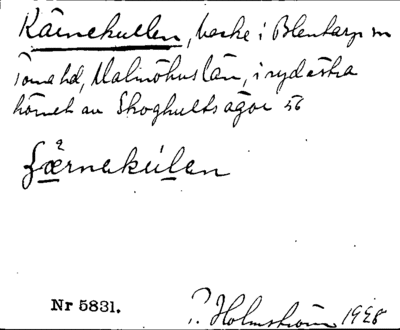 Kärnekullen, backe i Blentarp sn
Torna hd, Malmöhus län, i sydöstra
hörnet av Skoghults ägor 56
Nr 5831.
P. Holmström 1928